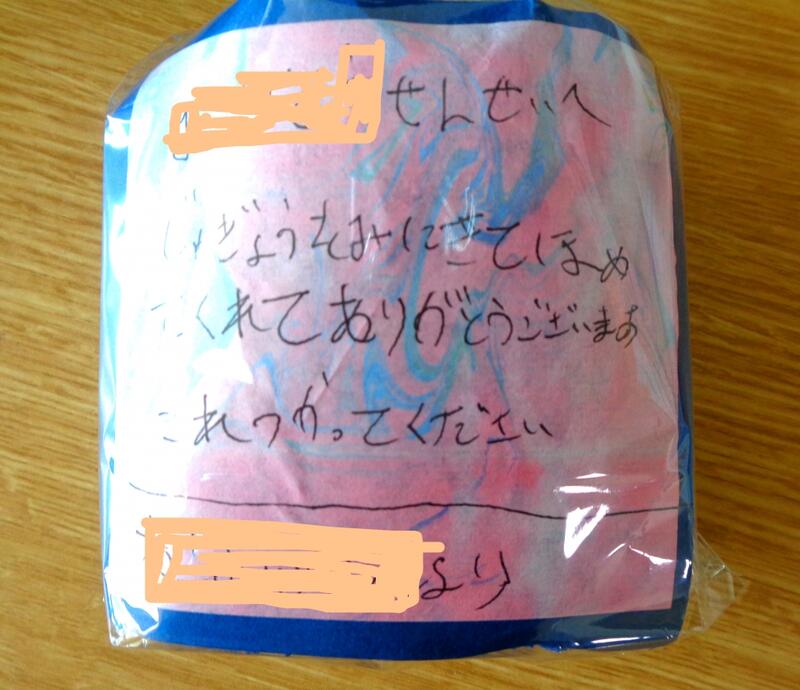 せんせいへ
じゅぎょうをみにきてほめ
てくれてありがとうございます
これつかってください
より